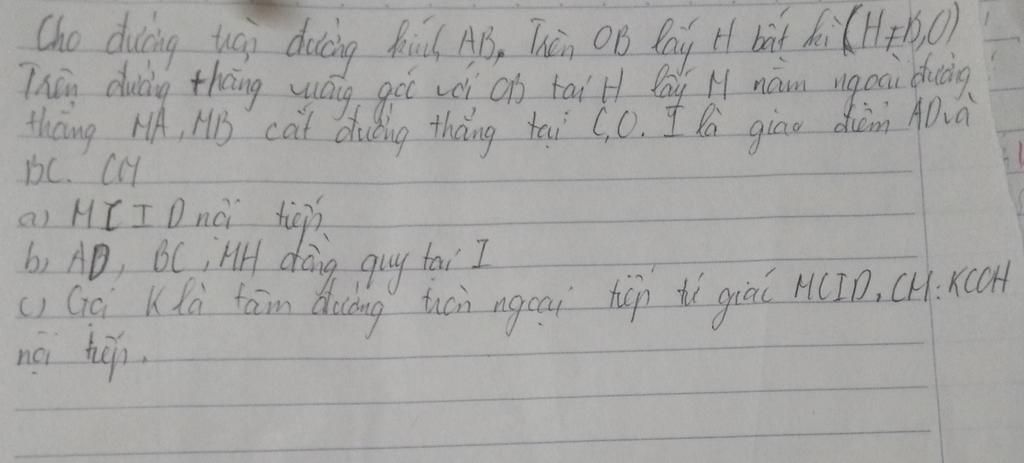 Cho đường tròn đường kính AB, Trên OB lấy H bất kì (H ≠ B,O)
Trên đường thẳng vuông góc với OB tại H lấy M nằm ngoài đường
thẳng MA, MB cắt đường thẳng tại C, D. I là giao điểm AD và
BC. CM
a) MCID nội tiếp
b, AD, BC, MH đồng quy tại I
c) Gọi K là tâm đường tròn ngoại tiếp tứ giác MCID, CM: KCOH
nội tiếp.